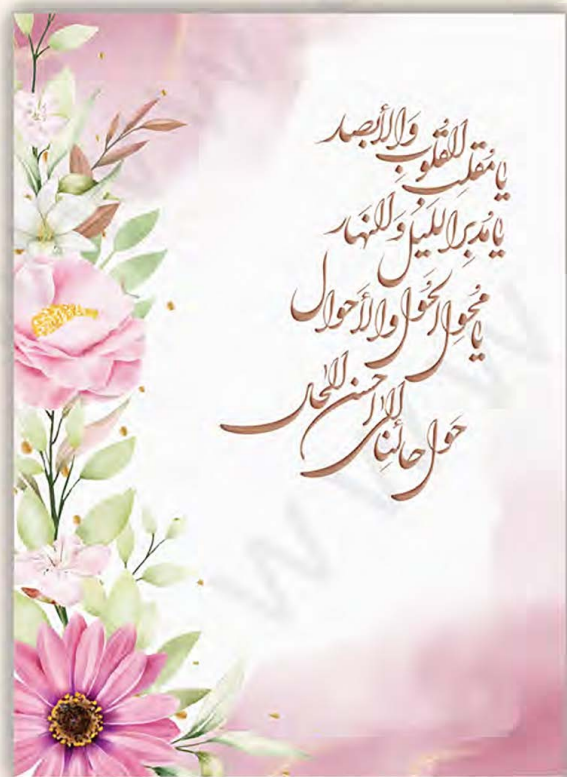 يا مُقلِبَ القُلُوبِ وَالأبصار
يا مُدبِرَ الليلِ وَ النَهار
يا مُحَوِلَ الحَولِ وَالأحوال
حَوِل حالَنا إلى أحسن الحال